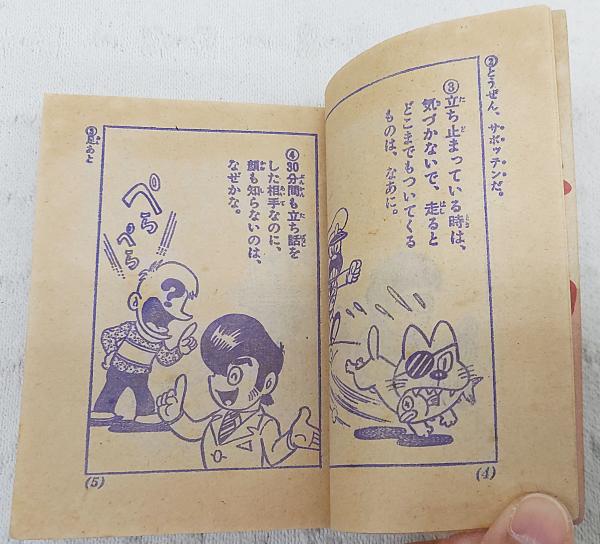 ②とうぜん、サボッテンだ。
③立ち止まっている時は、
気づかないで、走ると
どこまでもついてくる
ものは、なあに。
(4)
④30分間も立ち話を
した相手なのに、
顔も知らないのは、
なぜかな。
ぺら
ぺら
③足あと
(5)